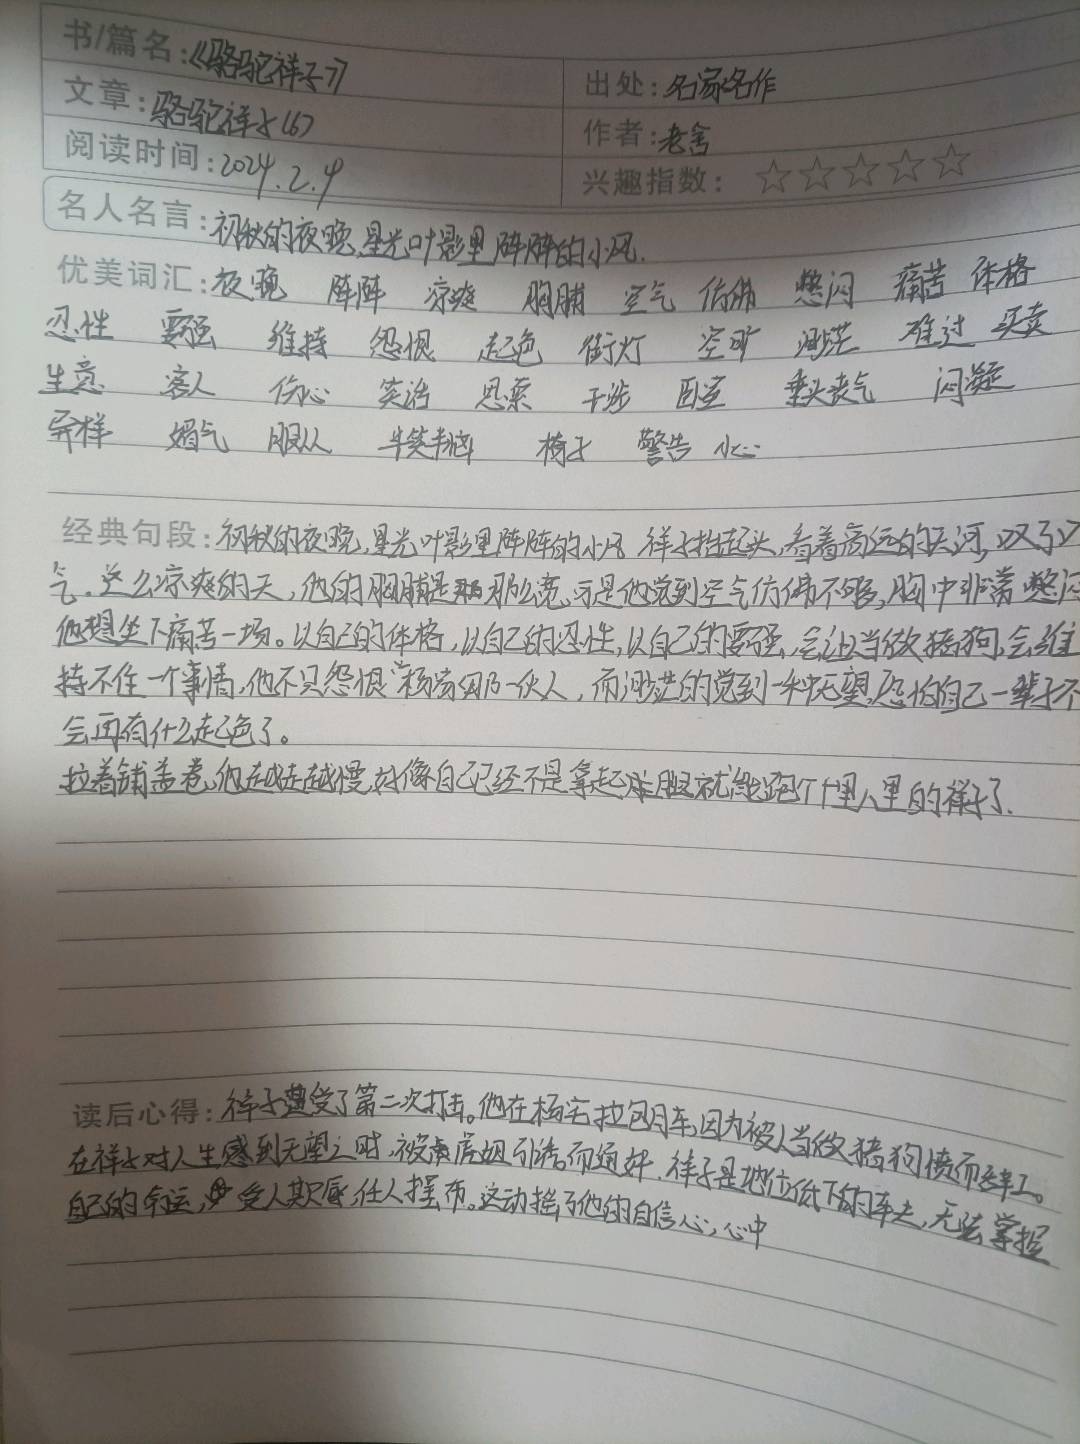 书/篇名:《骆驼祥子》 出处:名家名作
文章:骆驼祥子(6) 作者:老舍
阅读时间:2024.2.4 兴趣指数:☆☆☆☆☆
名人名言:初秋的夜晚,星光叶影里阵阵的小风.
优美词汇:夜晚 阵阵 凉爽 胸脯 空气 仿佛 憋闷 痛苦 体格
忍性 要强 维持 怨恨 起色 街灯 空旷 渺茫 难过 买卖
生意 客人 伤心 笑话 思索 干涉 卧室 垂头丧气 闷凝
异样 媚气 服从 半笑半恼 椅子 警告 小心
经典句段:初秋的夜晚,星光叶影里阵阵的小风 祥子抬起头,看着高远的天河,叹了口
气。这么凉爽的天,他的胸脯是那么宽,可是他觉到空气仿佛不够,胸中非常憋闷
他想坐下痛苦一场。以自己的体格,以自己的忍性,以自己的要强,会让当做猪狗,会维
持不住一个事情,他不只怨恨杨家那一伙人,而渺茫的觉到一种无望,恐怕自己一辈子不
会再有什么起色了。
拉着铺盖卷,他越走越慢,好像自己已经不是拿起腿就能跑个十里八里的祥子了.
读后心得:祥子遭受了第二次打击。他在杨宅拉包月车,因为被人当做猪狗愤而辞工。
在祥子对人生感到无望之时,被虎妞引诱而通奸.祥子是地位低下的车夫,无法掌握
自己的命运,受人欺辱,任人摆布。这动摇了他的自信心,心中